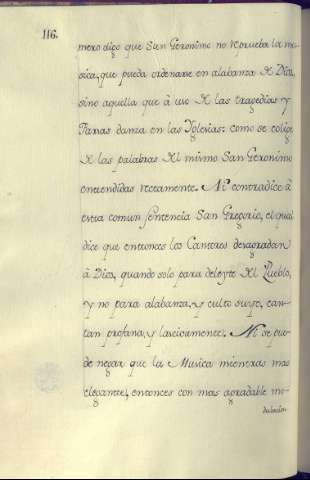 116.
mero digo que San Geronimo no reprueba la mu-
sica, que pueda ordenarse en alabanza de Dios,
sino aquella que à uso de las tragedias y
Farsas danza en las Yglesias: como se colige
de las palabras del mismo San Geronimo
entendidas rectamente. Ni contradice à
esta comun sentencia San Gregorio, el qual
dice que entonces los Cantores desagradan
à Dios, quando solo para deleyte del Pueblo,
y no para alabanza, y culto suyo, can-
tan profana, y lascivamente. Ni se pue-
de negar que la Musica mientras mas
elegante, entonces con mas agradable mo-
dulacion